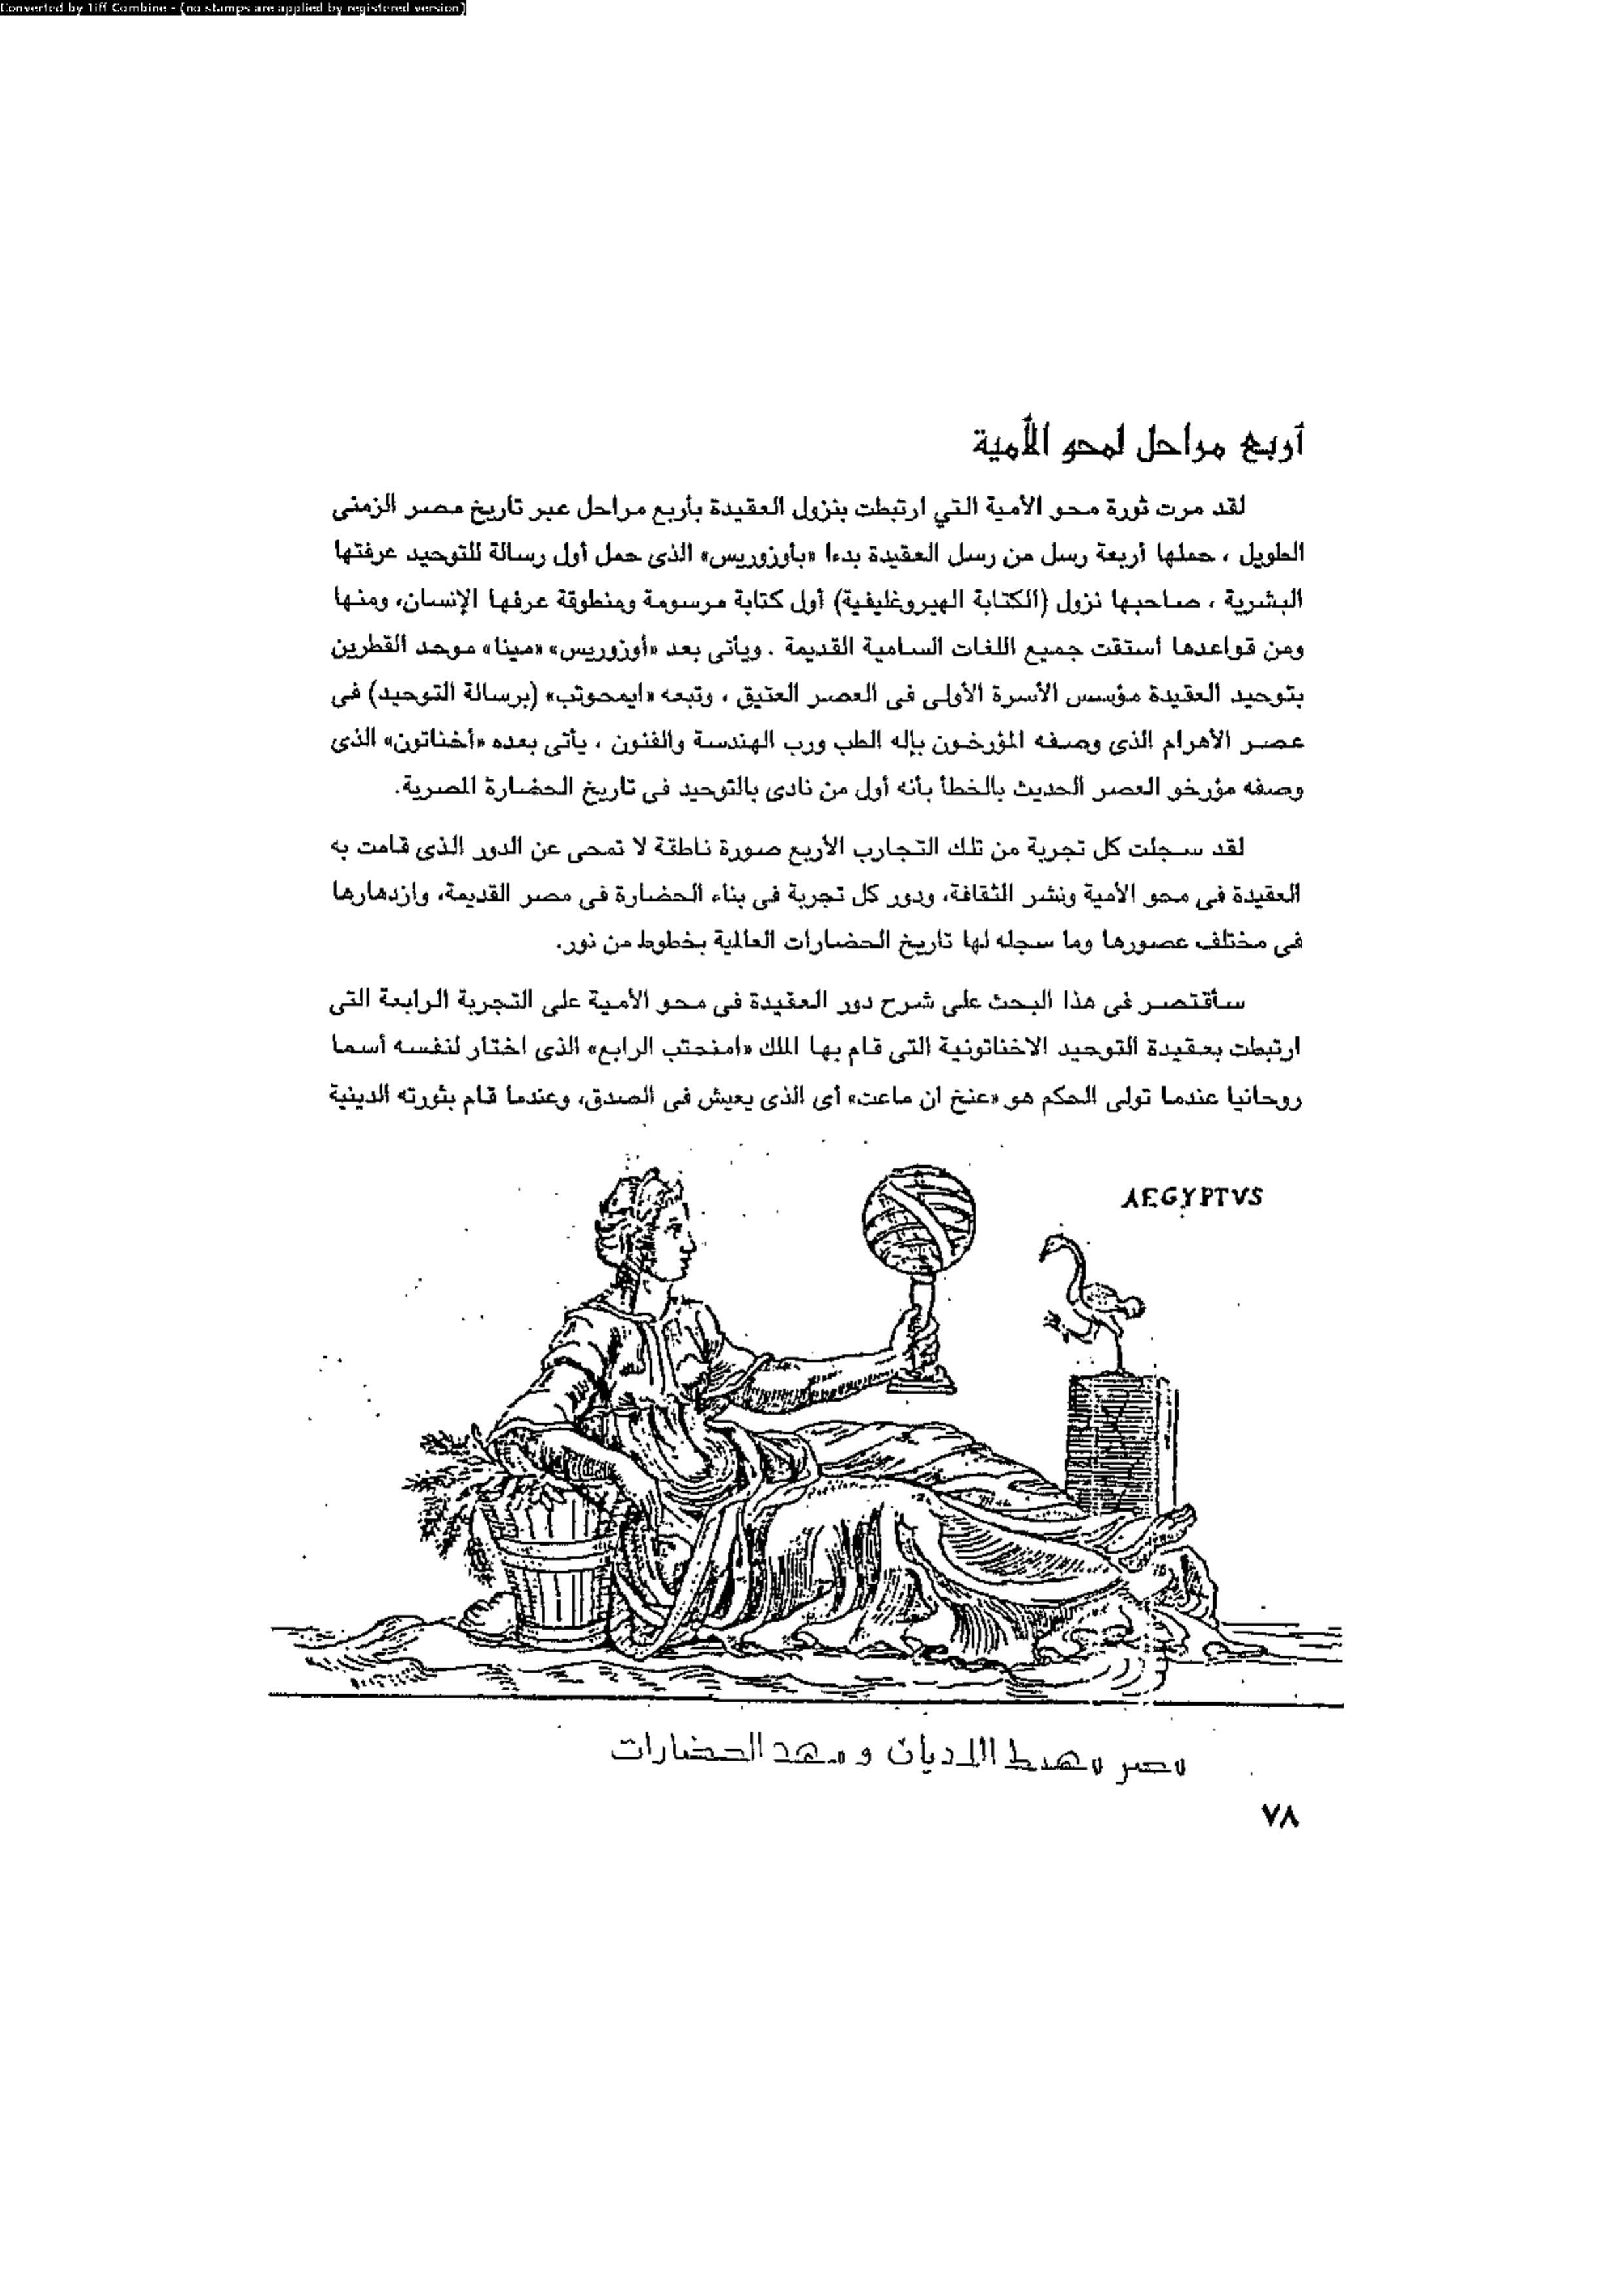 Converted by Tiff Combine - (no stamps are applied by registered version)
أربع مراحل لمحو الأمية
لقد مرت ثورة محو الأمية التي ارتبطت بنزول العقيدة بأربع مراحل عبر تاريخ مصر الزمنى
الطويل ، حملها أربعة رسل من رسل العقيدة بدءا «بأوزوريس» الذى حمل أول رسالة للتوحيد عرفتها
البشرية ، صاحبها نزول (الكتابة الهيروغليفية) أول كتابة مرسومة ومنطوقة عرفها الإنسان، ومنها
ومن قواعدها استقت جميع اللغات السامية القديمة . ويأتى بعد «أوزوريس» «مينا» موحد القطرين
بتوحيد العقيدة مؤسس الأسرة الأولى فى العصر العتيق ، وتبعه «ايمحوتب» (برسالة التوحيد) فى
عصر الأهرام الذى وصفه المؤرخون بإله الطب ورب الهندسة والفنون ، يأتى بعده «أخناتون» الذى
وصفه مؤرخو العصر الحديث بالخطأ بأنه أول من نادى بالتوحيد فى تاريخ الحضارة المصرية.
لقد سجلت كل تجربة من تلك التجارب الأربع صورة ناطقة لا تمحى عن الدور الذى قامت به
العقيدة فى محو الأمية ونشر الثقافة، ودور كل تجربة فى بناء الحضارة فى مصر القديمة، وازدهارها
فى مختلف عصورها وما سجله لها تاريخ الحضارات العالمية بخطوط من نور.
سأقتصر فى هذا البحث على شرح دور العقيدة فى محو الأمية على التجربة الرابعة التى
ارتبطت بعقيدة التوحيد الاخناتونية التى قام بها الملك «امنحتب الرابع» الذى اختار لنفسه أسما
روحانيا عندما تولى الحكم هو «عنخ ان ماعت» أى الذى يعيش فى الصدق، وعندما قام بثورته الدينية
AEGYPTVS
مصر مهبط الاديان و مهد الحضارات
٧٨